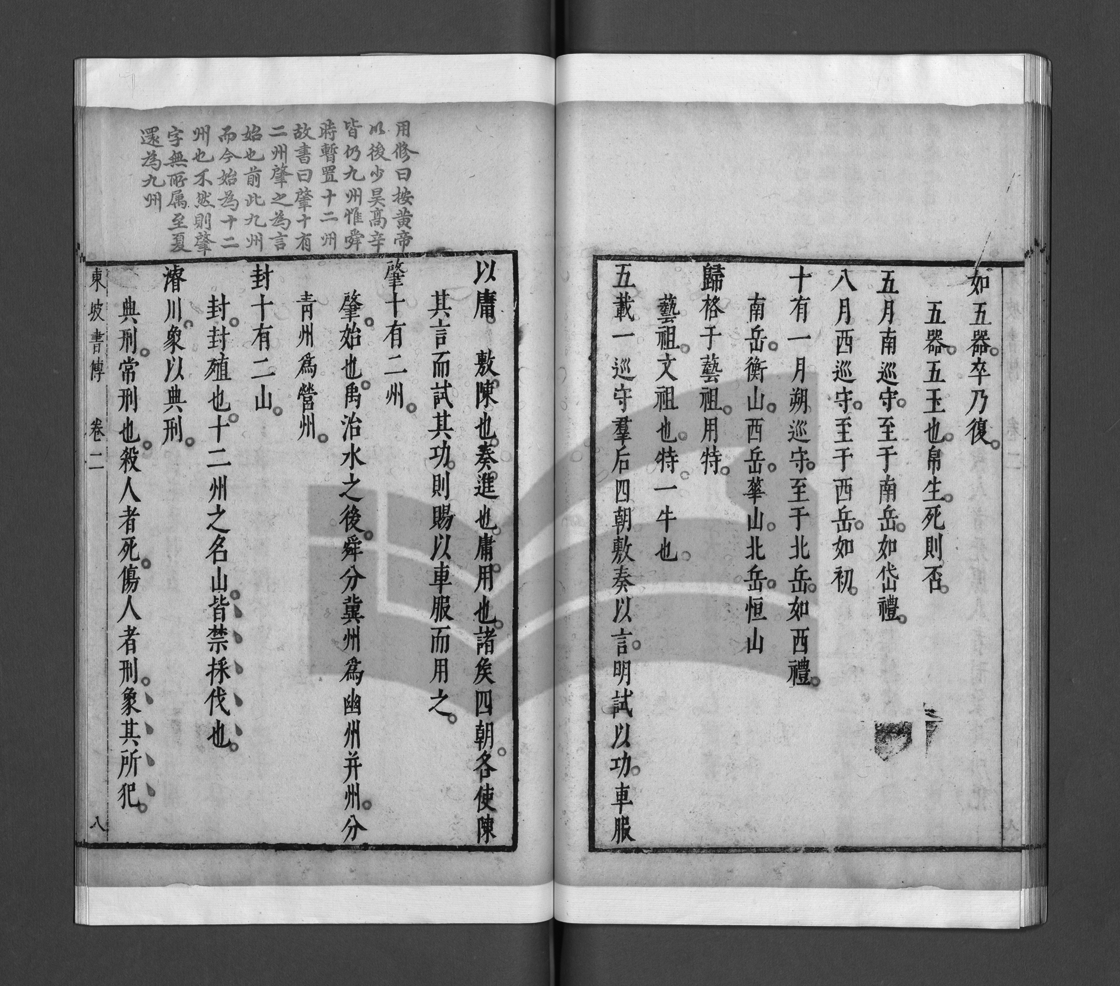 如五器卒乃復
五器五玉也帛生死則否
五月南巡守至于南岳如岱禮
八月西巡守至于西岳如初
十有一月朔巡守至于北岳如西禮
南岳衡山西岳華山北岳恒山
歸格于藝祖用特
藝祖文祖也特一牛也
五載一巡守羣后四朝敷奏以言明試以功車服
以庸敷陳也奏進也庸用也諸矦四朝各使陳
其言而試其功則賜以車服而用之
肇十有二州
肇始也禹治水之後舜分冀州爲幽州并州分
青州爲營州
封十有二山
封封殖也十二州之名山皆禁採伐也
濬川象以典刑
典刑常刑也殺人者死傷人者刑象其所犯
東坡書傳 卷二 八
用修曰按黄帝
以後少昊高辛
皆仍九州惟舜
時暫置十二州
故書曰肇十有
二州肇之為言
始也前此九州
而今始為十二
州也不然則肇
字無所属至夏
還為九州